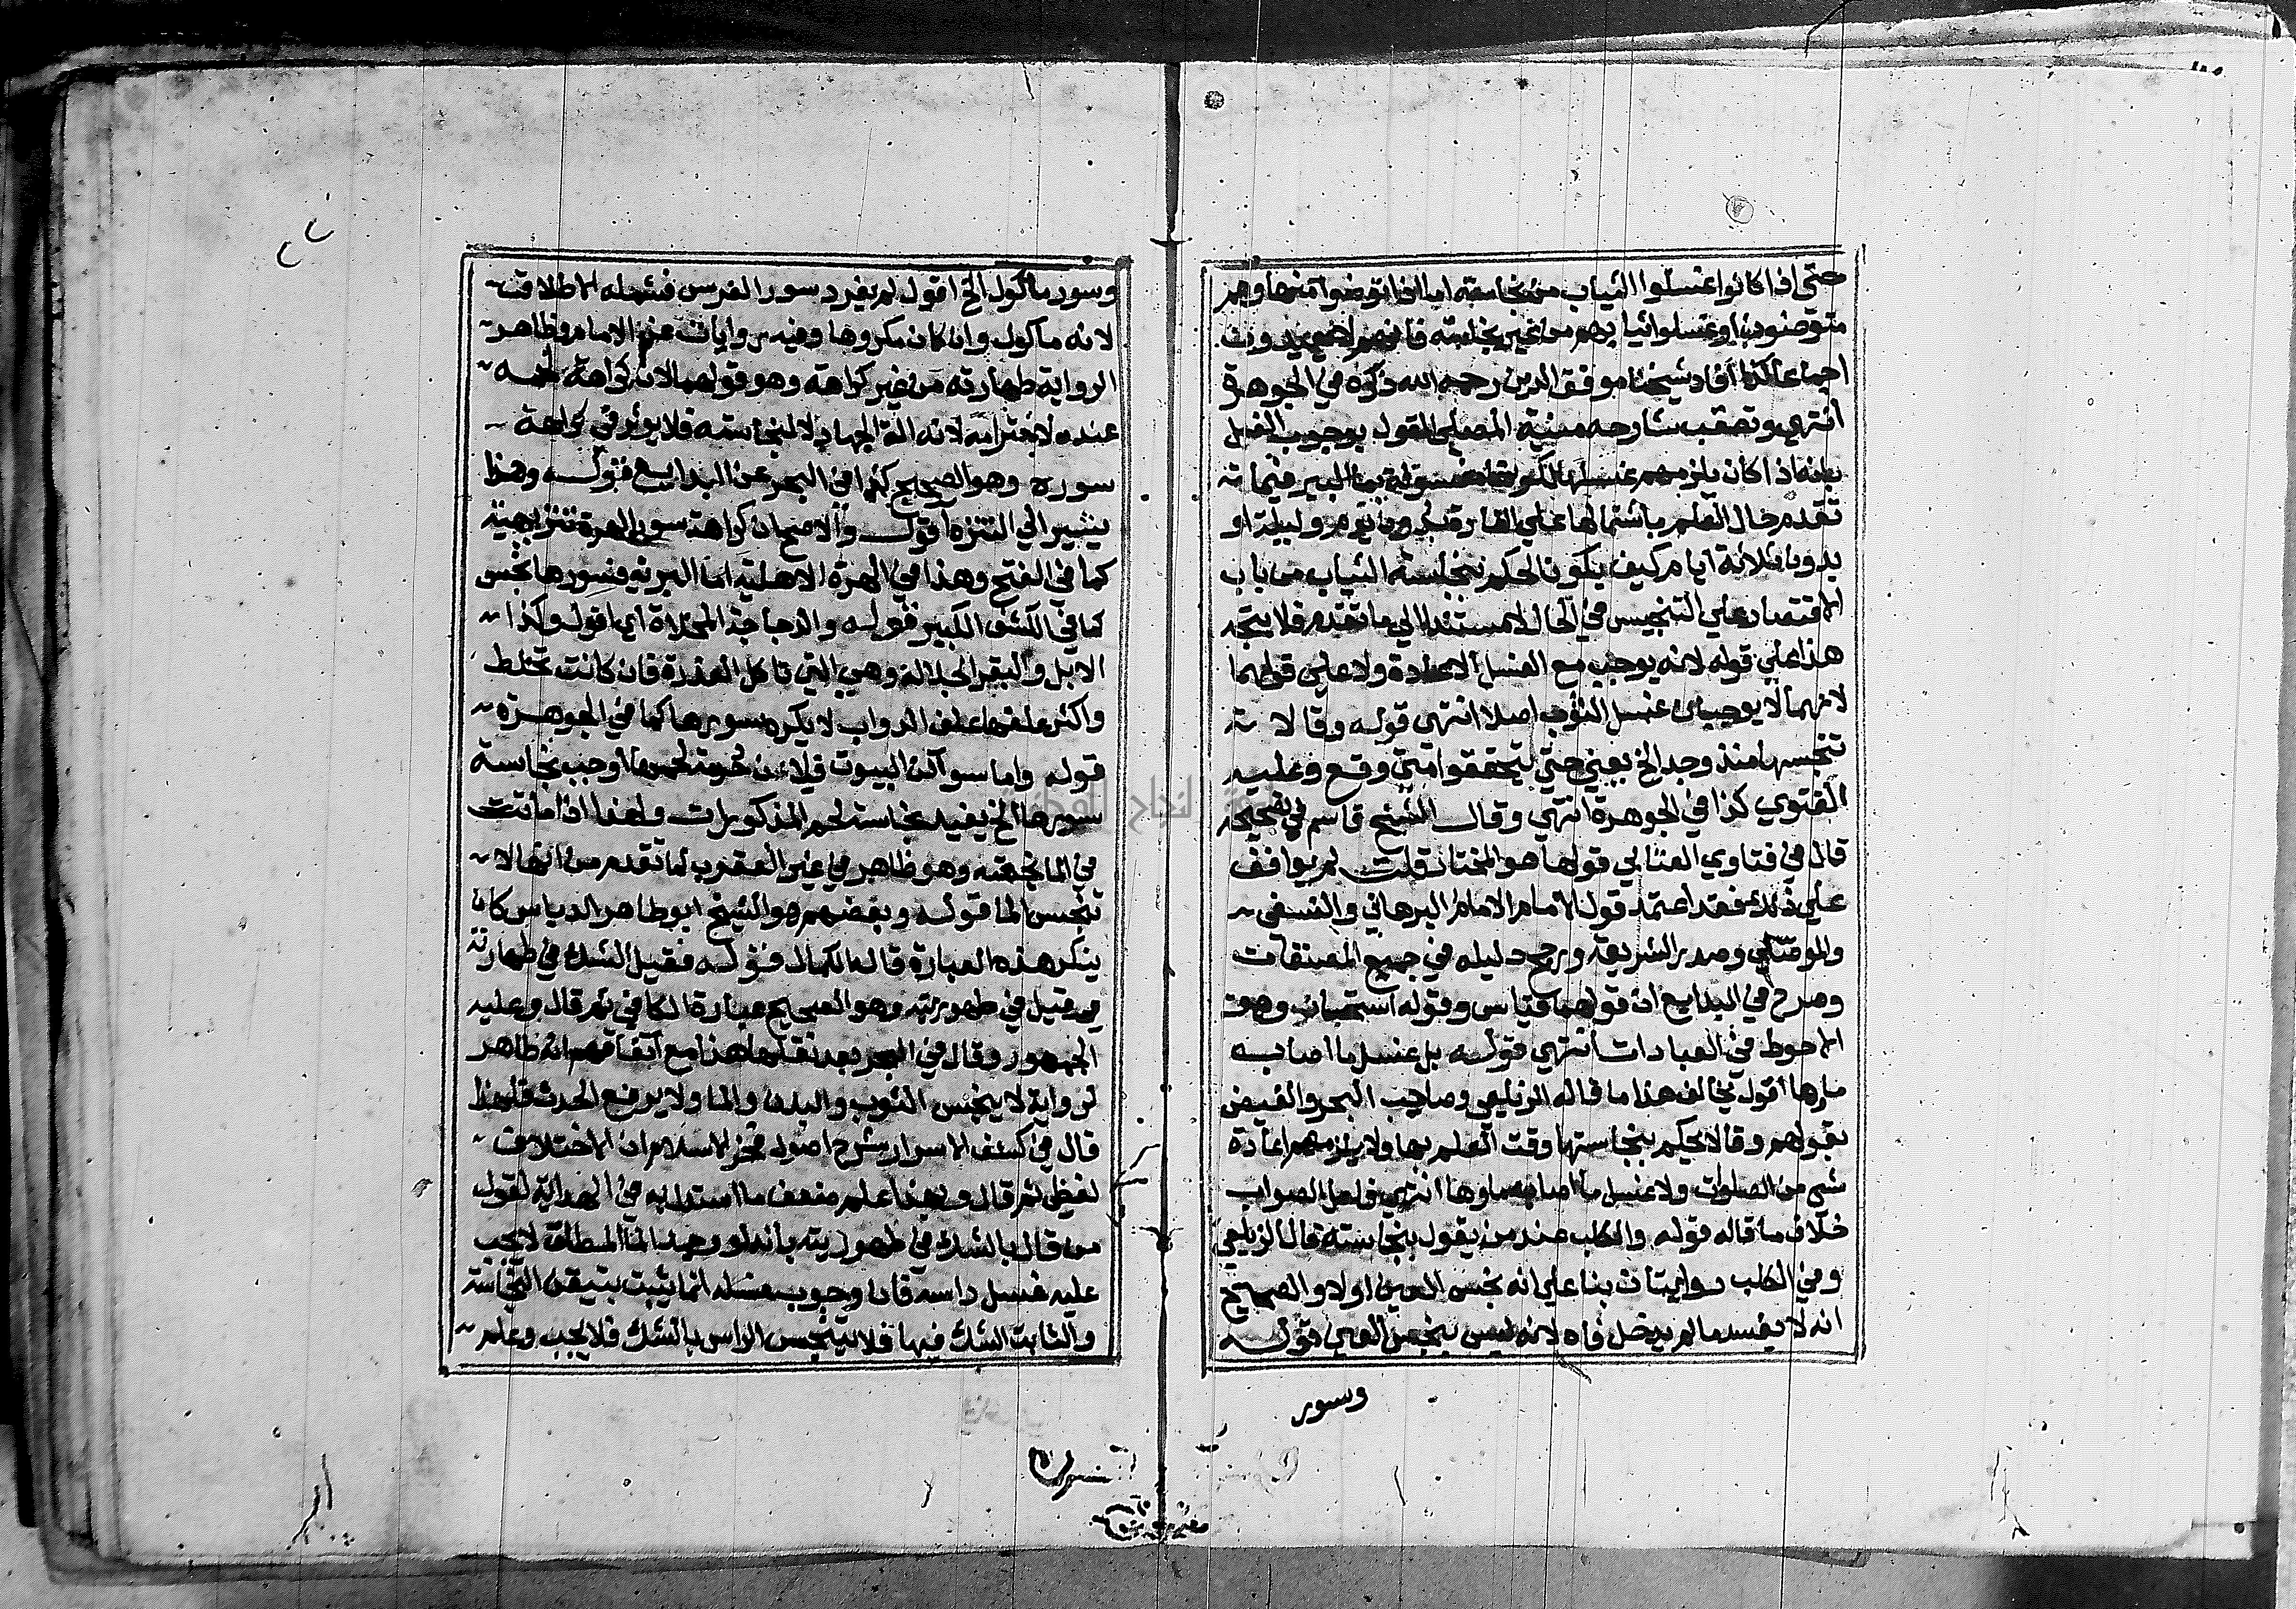 حتى اذا كانوا غسلوا الثياب من نجاسة اما اذا توضوا منها وهم
متوضون او غسلوا ثيابهم من غير نجاسة فانهم لا يعيدون
اجماعا كذا افاد شيخنا موفق الدين رحمه الله ذكره في الجوهرة
انتهى وتعقب شارحه منية المصلي القول بوجوب الغسل
بانه اذا كان يلزمهم غسلها لكونها مغسولة بماء البير فيما
تقدم حال العلم باشتمالها على الفارة بدون يوم وليلة او
بدون ثلاثة ايام كيف يكون الحكم بنجاسة الثياب من باب
الاقتصار على التنجيس في الحال لا مستندا الى ما تقدم فلا يتجه
هذا على قوله لانه يوجب مع الغسل الاعادة ولا على قولهما
لانهما لا يوجبان غسل الثوب اصلا انتهى قوله وقالا
تنجسها منذ وجد الخ يعني حتى يتحققوا متى وقع وعليه
الفتوى كذا في الجوهرة انتهى وقال الشيخ قاسم في تصحيحه
قال في فتاوي العتابي قولهما هو المختار قلت لم يوافق
على ذلك فقد اعتمد قول الامام الامام البرهاني والنسفي
والموصلي وصدر الشريعة ورجح دليله في جميع المصنفات
وصرح في البدايع ان قولهما قياس وقوله استحسان وهو
الاحوط في العبادات انتهى قوله بل غسل ما اصابه
مارها اقول يخالف هذا ما قاله الزيلعي وصاحب البحر والفيض
بقولهم وقالا يحكم بنجاستها وقت العلم بها ولا يلزمهم اعادة
شي من الصلوات ولا غسل ما اصابه ماوها انتهى فلعل الصواب
خلاف ما قاله قوله والكلب عند من يقول بنجاسته قال الزيلعي
وفي الكلب روايتان بنا على انه نجس العين اولا والصحيح
انه لا يفسد ما لم يدخل فاه لانه ليس بنجس العين قوله
وسور
وسور ماكول الخ اقول لم يفرد سور الفرس فشمله الاطلاق
لانه ماكول وان كان مكروها وفيه روايات عن الامام وظاهر
الرواية طهارته من غير كراهة وهو قولهما لان كراهة لحمه
عنده لاحترامه لانه الة الجهاد لا لنجاسته فلا يوثر في كراهة
سوره وهو الصحيح كذا في البحر عن البدايع قوله وهذا
يشير الى التنزه اقول والاصح ان كراهة سور الهرة تنزيهية
كما في الفتح وهذا في الهرة الاهلية اما البرية فسورها نجس
كما في الكشف الكبير قوله والدجاجة المخلاة اي اقول وكذا
الابل والبقر الجلالة وهي التي تاكل العذرة فان كانت تخلط
واكثر علفها علف الدواب لا يكره سورها كما في الجوهرة
قوله واما سواكن البيوت فلان حرمة لحمها اوجب نجاسة
سورها الخ يفيد نجاسة لحم المذكورات ولهذا اذا ماتت
في الما نجسته وهو ظاهر في غير العقرب لما تقدم من انها لا
تنجس الما قوله وبعضهم هو الشيخ ابو طاهر الدباس كان
ينكر هذه العبارة قاله الكمال قوله فقيل الشك في طهارته
وقيل في طهوريته وهو الصحيح عبارة الكافي ثم قال وعليه
الجمهور وقال في البحر بعد نقلها هذا مع اتفاقهم انه ظاهر
الرواية لا ينجس الثوب والبدن والما ولا يرفع الحدث فلهذا
قال في كشف الاسرار شرح اصول فخر الاسلام ان الاختلاف
لفظي ثم قال وبهذا علم ضعف ما استدل به في الهداية لقول
من قال بالشك في طهوريته بانه لو وجد الما المطلق لا يجب
عليه غسل راسه فان وجوب غسله انما يثبت بتيقن النجاسة
والثابت الشك فيها فلا يتنجس الراس بالشك فلا يجب وعلم